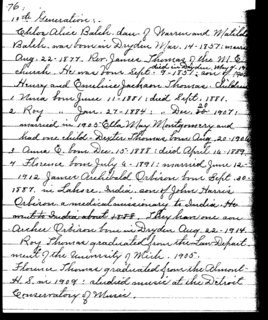 76.
10th Generation:-
Chloe Alice Balch, dau. of Warren and Matilda
Balch, was born in Dryden Mar. 14-1857: married
Aug. 22-1877. Rev. James Thomas of the M. E.
died in Dryden, May
church. He was born Sept. 9-1851: son of
Henry and Emeline Jackson Thomas. Children
1 Vera born June 11-1881: died Sept. 1881.
2 Roy " Jan. 27-1884: " Dec. 20 1907:
married in 1905 Ella May Montgomery and
had one child- Dexter Thomas born Aug. 22-1906
3 Anna E. born Dec. 15-1888: died April 12-1889.
4 Florence born July 4-1891: married June 12-
1912 James Archibald Orbison born Sept. 20-
1887. in Lahore, India. son of John Harris
Orbison a medical missionary to India. He
went to India about 1888. They have one son
Archie Orbison born in Dryden Aug. 22-1914.
Roy Thomas graduated from the Law Depart-
ment of the University of Mich. 1905.
Florence Thomas graduated from the Almont
H. S. in 1909: studied music at the Detroit
Conservatory of Music.